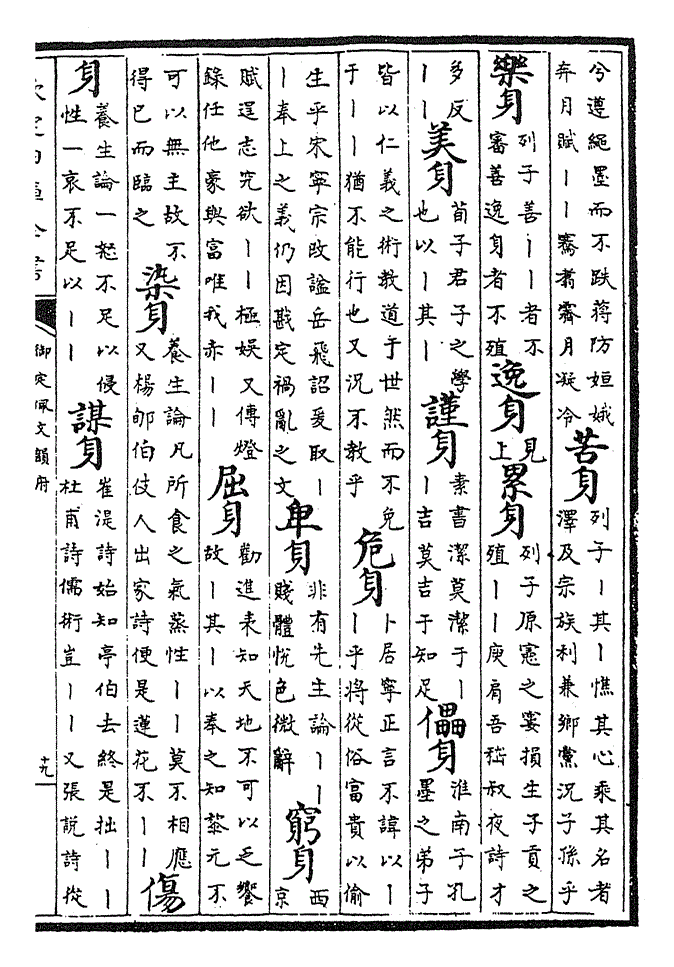 兮遵繩墨而不跌蔣防姮娥
奔月賦丨丨鶱翥霽月凝冷
苦身
列子丨其丨憔其心乘其名者
澤及宗族利兼鄉黨況子孫乎
樂身
列子善丨丨者不
審善逸身者不殖
逸身
見
上
累身
列子原憲之窶損生子貢之
殖丨丨庾肩吾嵇叔夜詩才
多反
丨丨
美身
荀子君子之學
也以丨其丨
謹身
素書潔莫潔于丨
丨吉莫吉于知足
儡身
淮南子孔
墨之弟子
皆以仁義之術教道于世然而不免
于丨丨猶不能行也又況不教乎
危身
卜居寧正言不諱以丨
丨乎將從俗富貴以偷
生乎宋寧宗改諡岳飛詔爰取丨
丨奉上之義仍因戡定禍亂之文
卑身
非有先生論丨丨
賤體悅色微辭
窮身
西
京
賦逞志究欲丨丨極娛又傳燈
錄任他豪與富唯我赤丨丨
屈身
勸進表知天地不可以乏饗
故丨其丨以奉之知黎元不
可以無主故不
得已而臨之
染身
養生論凡所食之氣蒸性丨丨莫不相應
又楊郇伯伎人出家詩便是蓮花不丨丨
傷
身
養生論一怒不足以侵
性一哀不足以丨丨
謀身
崔湜詩始知亭伯去終是拙丨丨
杜甫詩儒術豈丨丨又張說詩從
欽定四庫全書
御定佩文韻府
十九